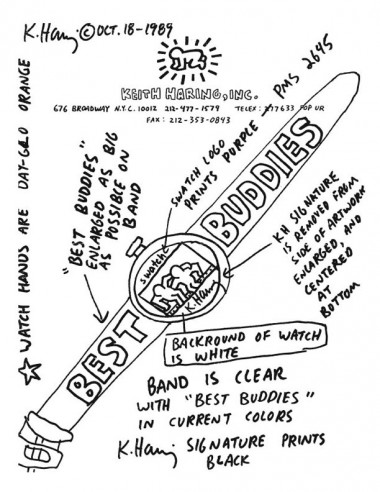 K. Haring © OCT. 18-1989
KEITH HARING, INC.
676 BROADWAY N.Y.C. 10012 212-477-1579 TELEX: 217633 POP UR
FAX: 212-353-0843
☆ WATCH HANDS ARE DAY-GLO ORANGE
"BEST BUDDIES"
ENLARGED AS BIG
AS POSSIBLE ON
BAND
SWATCH LOGO
PRINTS PURPLE PMS 2645
KH SIGNATURE
IS REMOVED FROM
SIDE OF ARTWORK
ENLARGED, AND
CENTERED
AT
BOTTOM
BUDDIES
swatch
K. Haring
BEST
BACKROUND OF WATCH
IS WHITE
BAND IS CLEAR
WITH "BEST BUDDIES"
IN CURRENT COLORS
K. Haring SIGNATURE PRINTS
BLACK